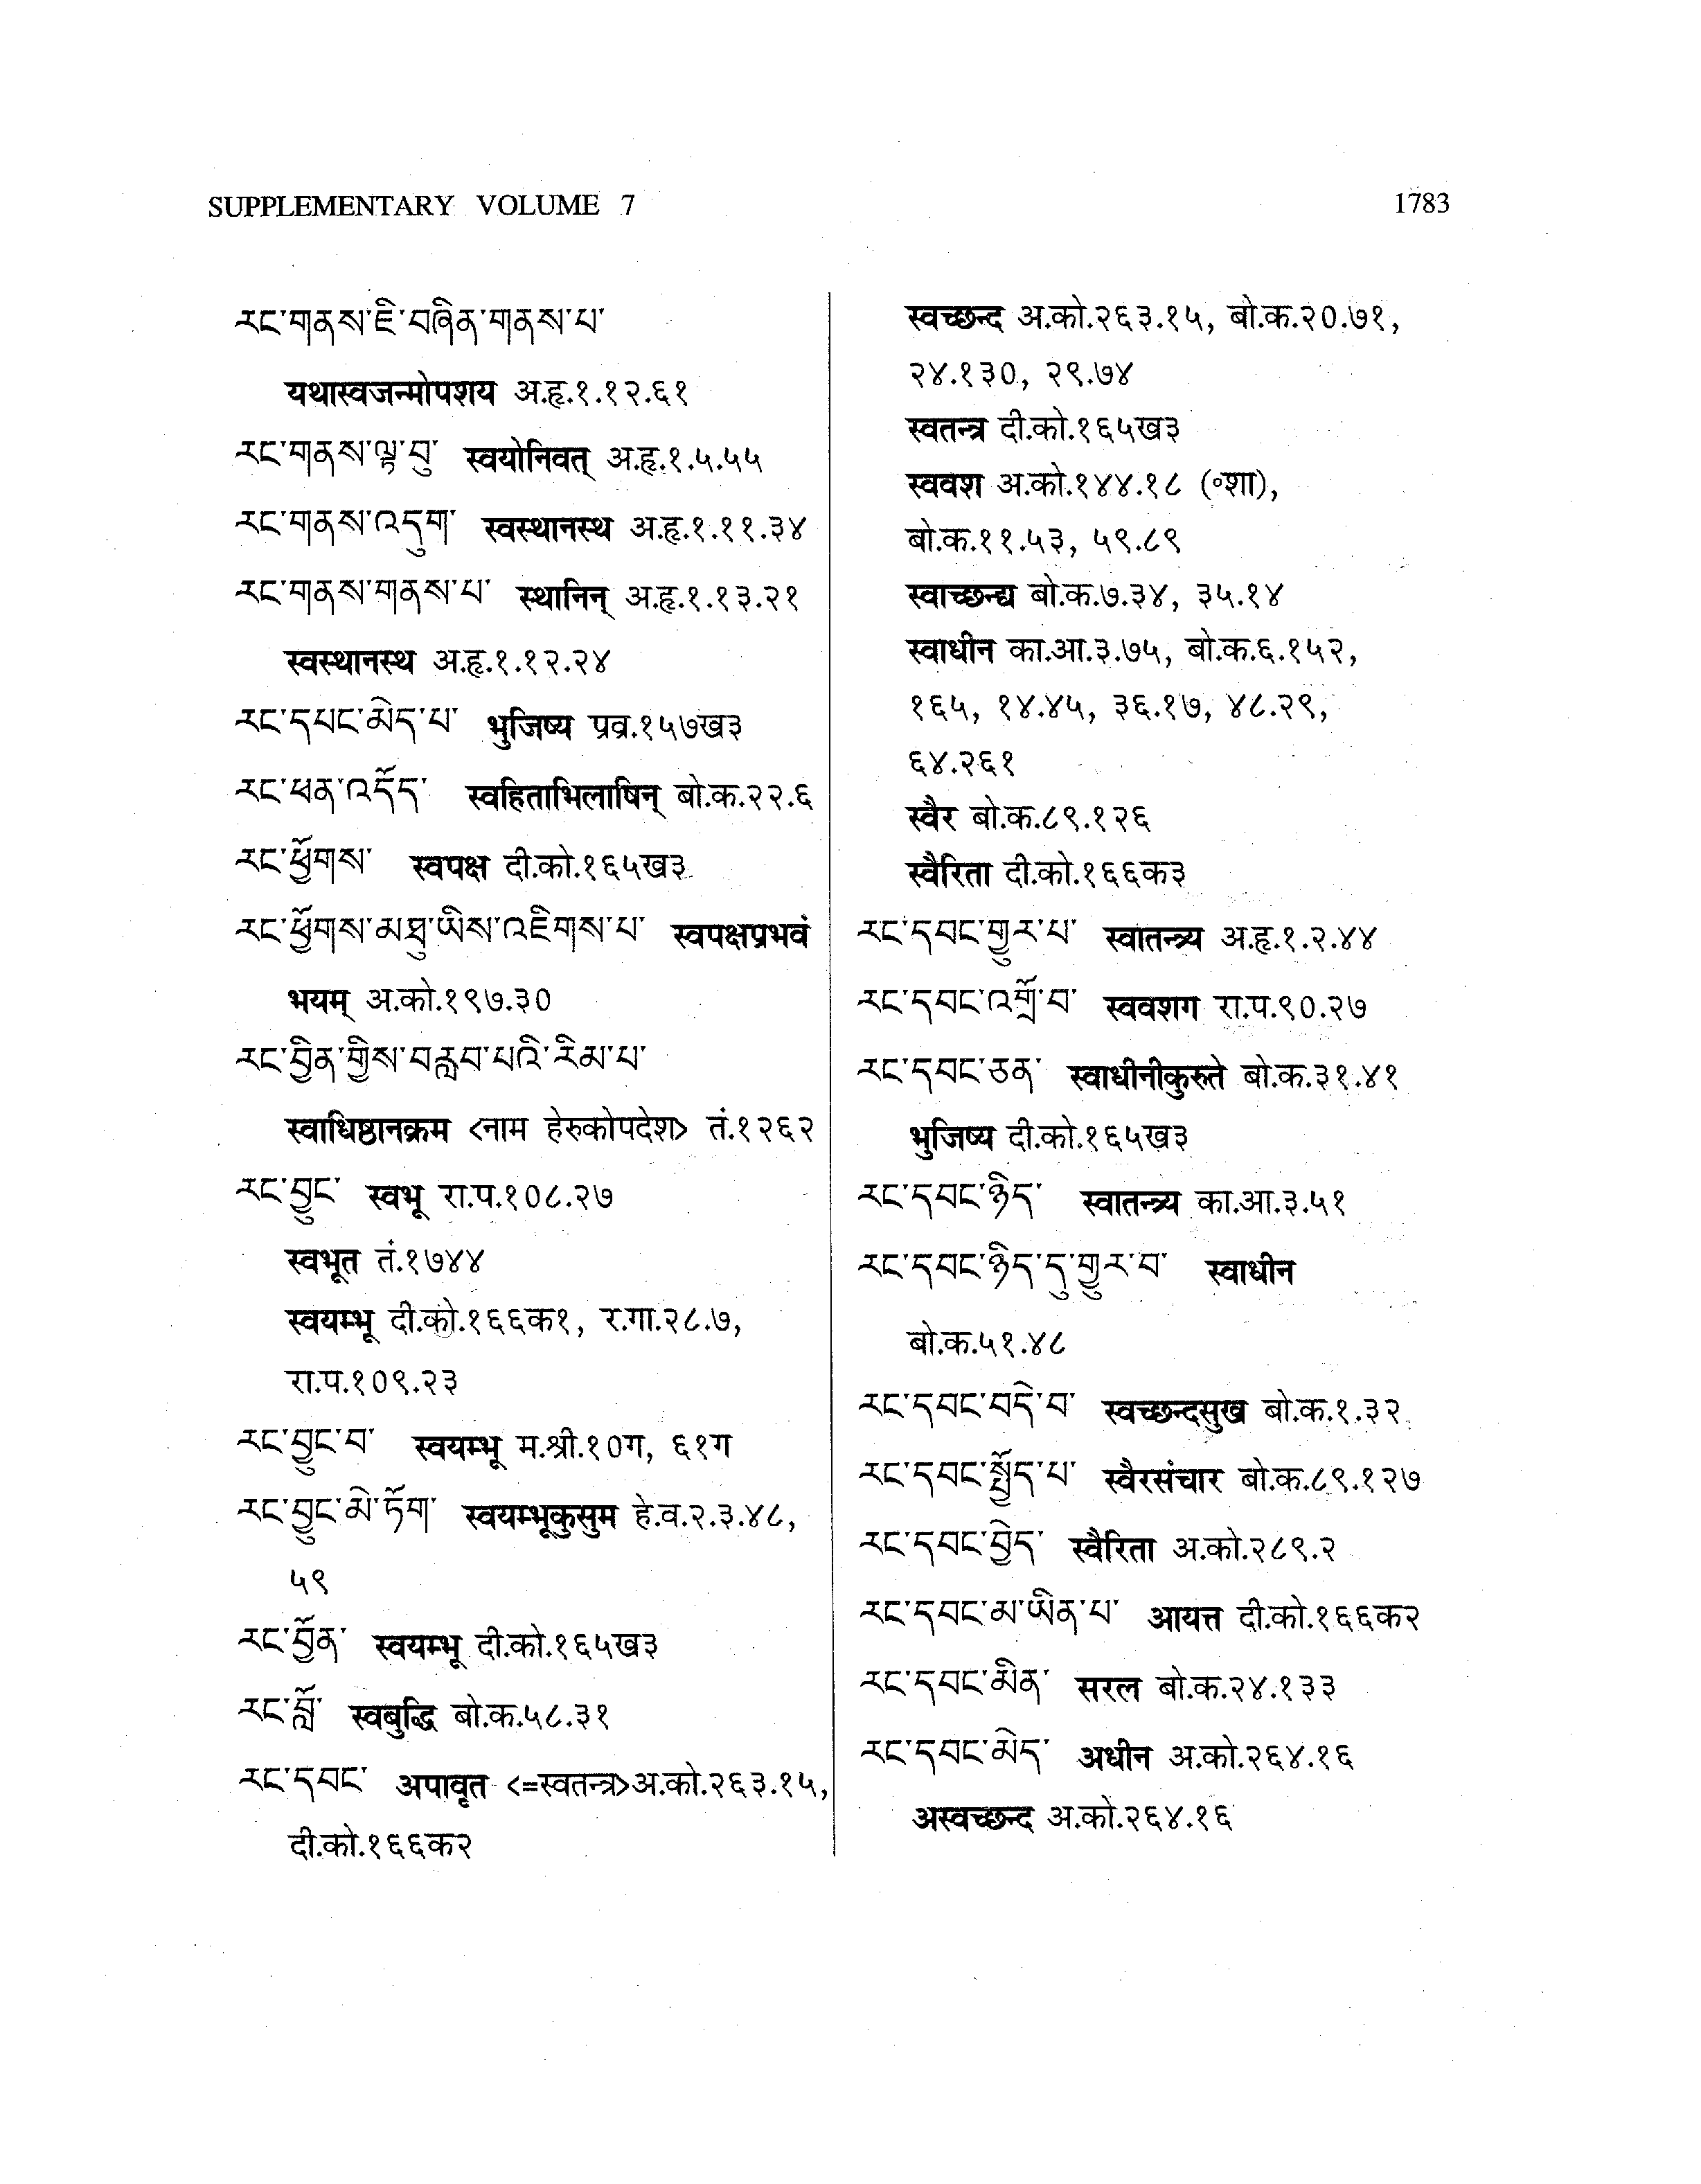 SUPPLEMENTARY VOLUME 7
1783
རང་གནས་ཇི་བཞིན་གནས་པ་
यथास्वजन्मोपशय अ.हृ.१.१२.६१
རང་གནས་ལྟ་བུ་ स्वयोनिवत् अ.हृ.१.५.५५
རང་གནས་འདུག་ स्वस्थानस्थ अ.हृ.१.११.३४
རང་གནས་གནས་པ་ स्थानिन् अ.हृ.१.१३.२१
स्वस्थानस्थ अ.हृ.१.१२.२४
རང་དཔང་མེད་པ་ भुजिष्य प्रव्र.१५७ख३
རང་ཕན་འདོད་ स्वहिताभिलाषिन् बो.क.२२.६
རང་ཕྱོགས་ स्वपक्ष दी.को.१६५ख३
རང་ཕྱོགས་མཐུ་ཡིས་འཇིགས་པ་ स्वपक्षप्रभवं
भयम् अ.को.१९७.३०
རང་བྱིན་གྱིས་བརླབ་པའི་རིམ་པ་
स्वाधिष्ठानक्रम <नाम हेरुकोपदेश> तं.१२६२
རང་བྱུང་ स्वभू रा.प.१०८.२७
स्वभूत तं.१७४४
स्वयम्भू दी.को.१६६क१, र.गा.२८.७,
रा.प.१०९.२३
རང་བྱུང་བ་ स्वयम्भू म.श्री.१०ग, ६१ग
རང་བྱུང་མེ་ཏོག་ स्वयम्भूकुसुम हे.व.२.३.४८,
५९
རང་བྱོན་ स्वयम्भू दी.को.१६५ख३
རང་བློ་ स्वबुद्धि बो.क.५८.३१
རང་དབང་ अपावृत <=स्वतन्त्र>अ.को.२६३.१५,
दी.को.१६६क२
स्वच्छन्द अ.को.२६३.१५, बो.क.२०.७१,
२४.१३०, २९.७४
स्वतन्त्र दी.को.१६५ख३
स्ववश अ.को.१४४.१८ (॰शा),
बो.क.११.५३, ५९.८९
स्वाच्छन्द्य बो.क.७.३४, ३५.१४
स्वाधीन का.आ.३.७५, बो.क.६.१५२,
१६५, १४.४५, ३६.१७, ४८.२९,
६४.२६१
स्वैर बो.क.८९.१२६
स्वैरिता दी.को.१६६क३
རང་དབང་གྱུར་པ་ स्वातन्त्र्य अ.हृ.१.२.४४
རང་དབང་འགྲོ་བ་ स्ववशग रा.प.९०.२७
རང་དབང་ཅན་ स्वाधीनीकुरुते बो.क.३१.४१
भुजिष्य दी.को.१६५ख३
རང་དབང་ཉིད་ स्वातन्त्र्य का.आ.३.५१
རང་དབང་ཉིད་དུ་གྱུར་བ་ स्वाधीन
बो.क.५१.४८
རང་དབང་བདེ་བ་ स्वच्छन्दसुख बो.क.१.३२
རང་དབང་སྤྱོད་པ་ स्वैरसंचार बो.क.८९.१२७
རང་དབང་བྱེད་ स्वैरिता अ.को.२८९.२
རང་དབང་མ་ཡིན་པ་ आयत्त दी.को.१६६क२
རང་དབང་མིན་ सरल बो.क.२४.१३३
རང་དབང་མེད་ अधीन अ.को.२६४.१६
अस्वच्छन्द अ.को.२६४.१६